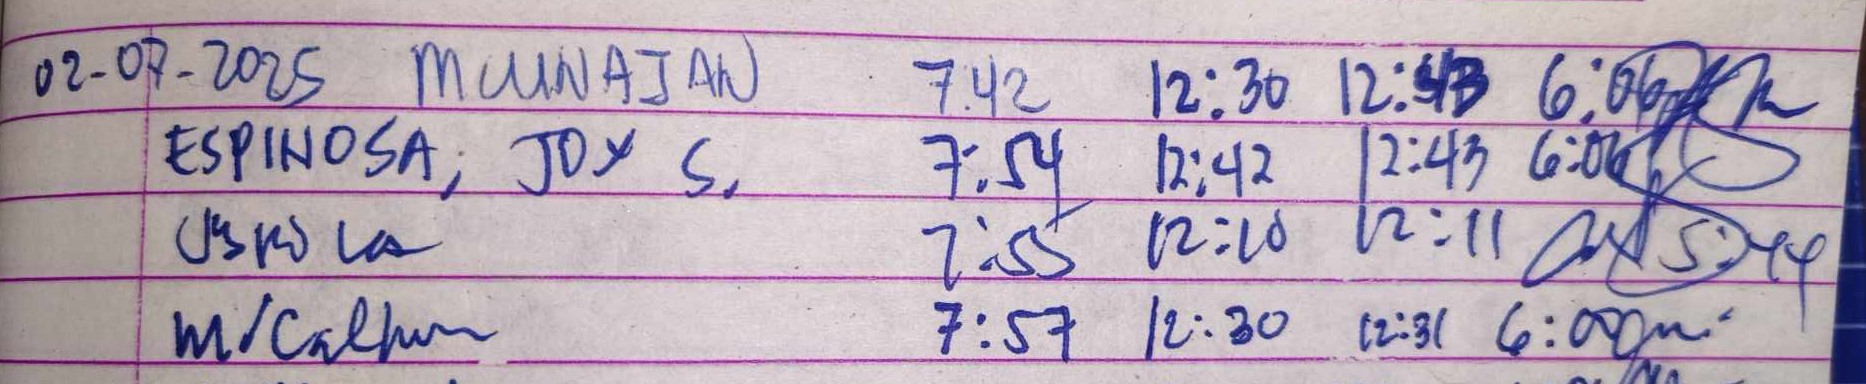 02-07-2025 MUNAJAN 7:42 12:30 12:43 6:06
ESPINOSA, JOY S. 7:54 12:42 12:43 6:06
7:55 12:10 12:11 5:44
7:57 12:30 12:31 6:00